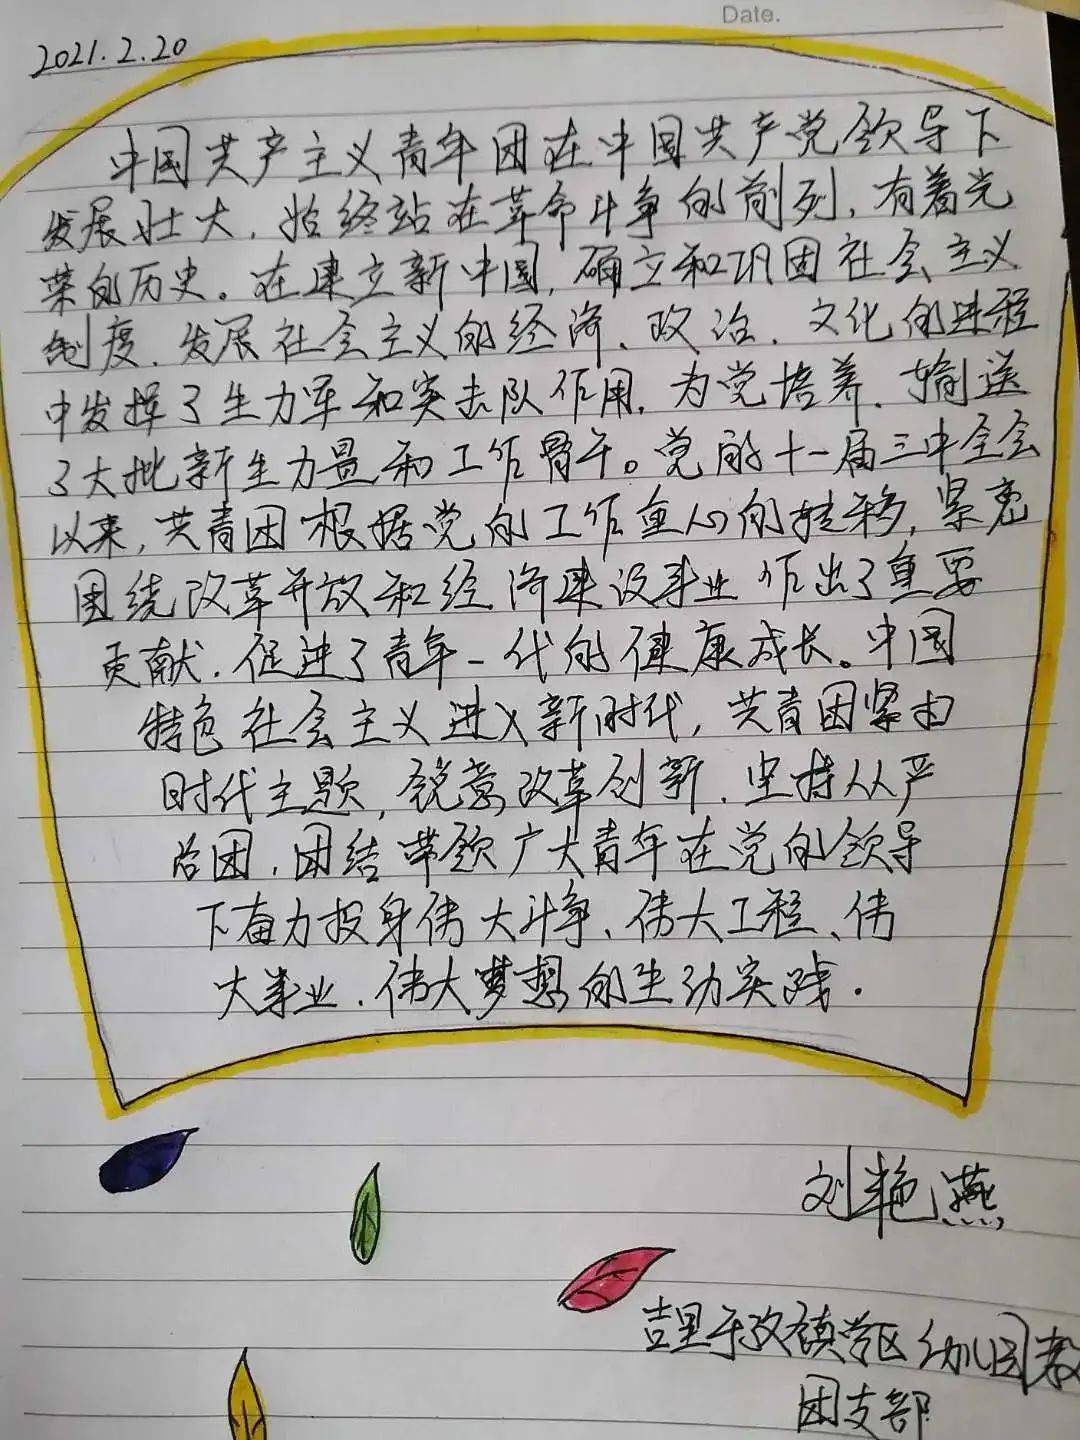 Date.
2021.2.20
中国共产主义青年团在中国共产党领导下
发展壮大，始终站在革命斗争的前列，有着光
荣的历史。在建立新中国，确立和巩固社会主义
制度，发展社会主义的经济、政治、文化的进程
中发挥了生力军和突击队作用，为党培养、输送
了大批新生力量和工作骨干。党的十一届三中全会
以来，共青团根据党的工作重心的转移，紧密
围绕改革开放和经济建设事业作出了重要
贡献，促进了青年一代的健康成长。中国
特色社会主义进入新时代，共青团紧扣
时代主题，锐意改革创新，坚持从严
治团，团结带领广大青年在党的领导
下奋力投身伟大斗争、伟大工程、伟
大事业、伟大梦想的生动实践．
刘艳燕
吉里于孜镇学区幼儿园教
团支部